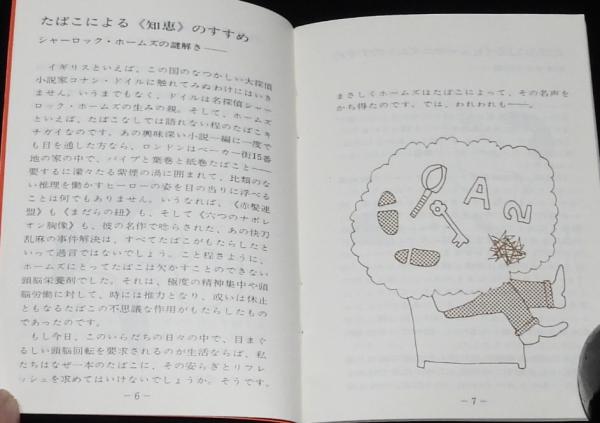 たばこによる《知恵》のすすめ
シャーロック・ホームズの謎解き――
イギリスといえば、この国のなつかしい大探偵
小説家コナン・ドイルに触れてみぬわけにはいき
ません。いうまでもなく、ドイルは名探偵シャー
ロック・ホームズの生みの親。そして、ホームズ
といえば、たばこなしでは語れない程のたばこキ
チガイなのです。あの興味深い小説一編に一度で
も目を通した方なら、ロンドンはベーカー街15番
地の家の中で、パイプと葉巻と紙巻たばこと――
要するに濛々たる紫煙の渦に囲まれて、比類のな
い推理を働かすヒーローの姿を目の当りに浮べる
ことは何でもありません。いうなれば、《赤髪連
盟》も《まだらの紐》も、そして《六つのナポレ
オン胸像》も、彼の名作で唸らされた、あの快刀
乱麻の事件解決は、すべてたばこがもたらしたと
いって過言ではないでしょう。こと程さように、
ホームズにとってたばこは欠かすことのできない
頭脳栄養剤でした。それは、極度の精神集中や頭
脳労働に対して、時には推力となり、或いは休止
ともなるたばこの不思議な作用がもたらしたもの
であったのです。
もし今日、このいらだちの日々の中で、目まぐ
るしい頭脳回転を要求されるのが生活ならば、私
たちはなぜ一本のたばこに、その安らぎとリフレ
ッシュを求めてはいけないでしょうか。そうです。
－6－
まさしくホームズはたばこによって、その名声を
かち得たのです。では、われわれも――。
A
2
－7－